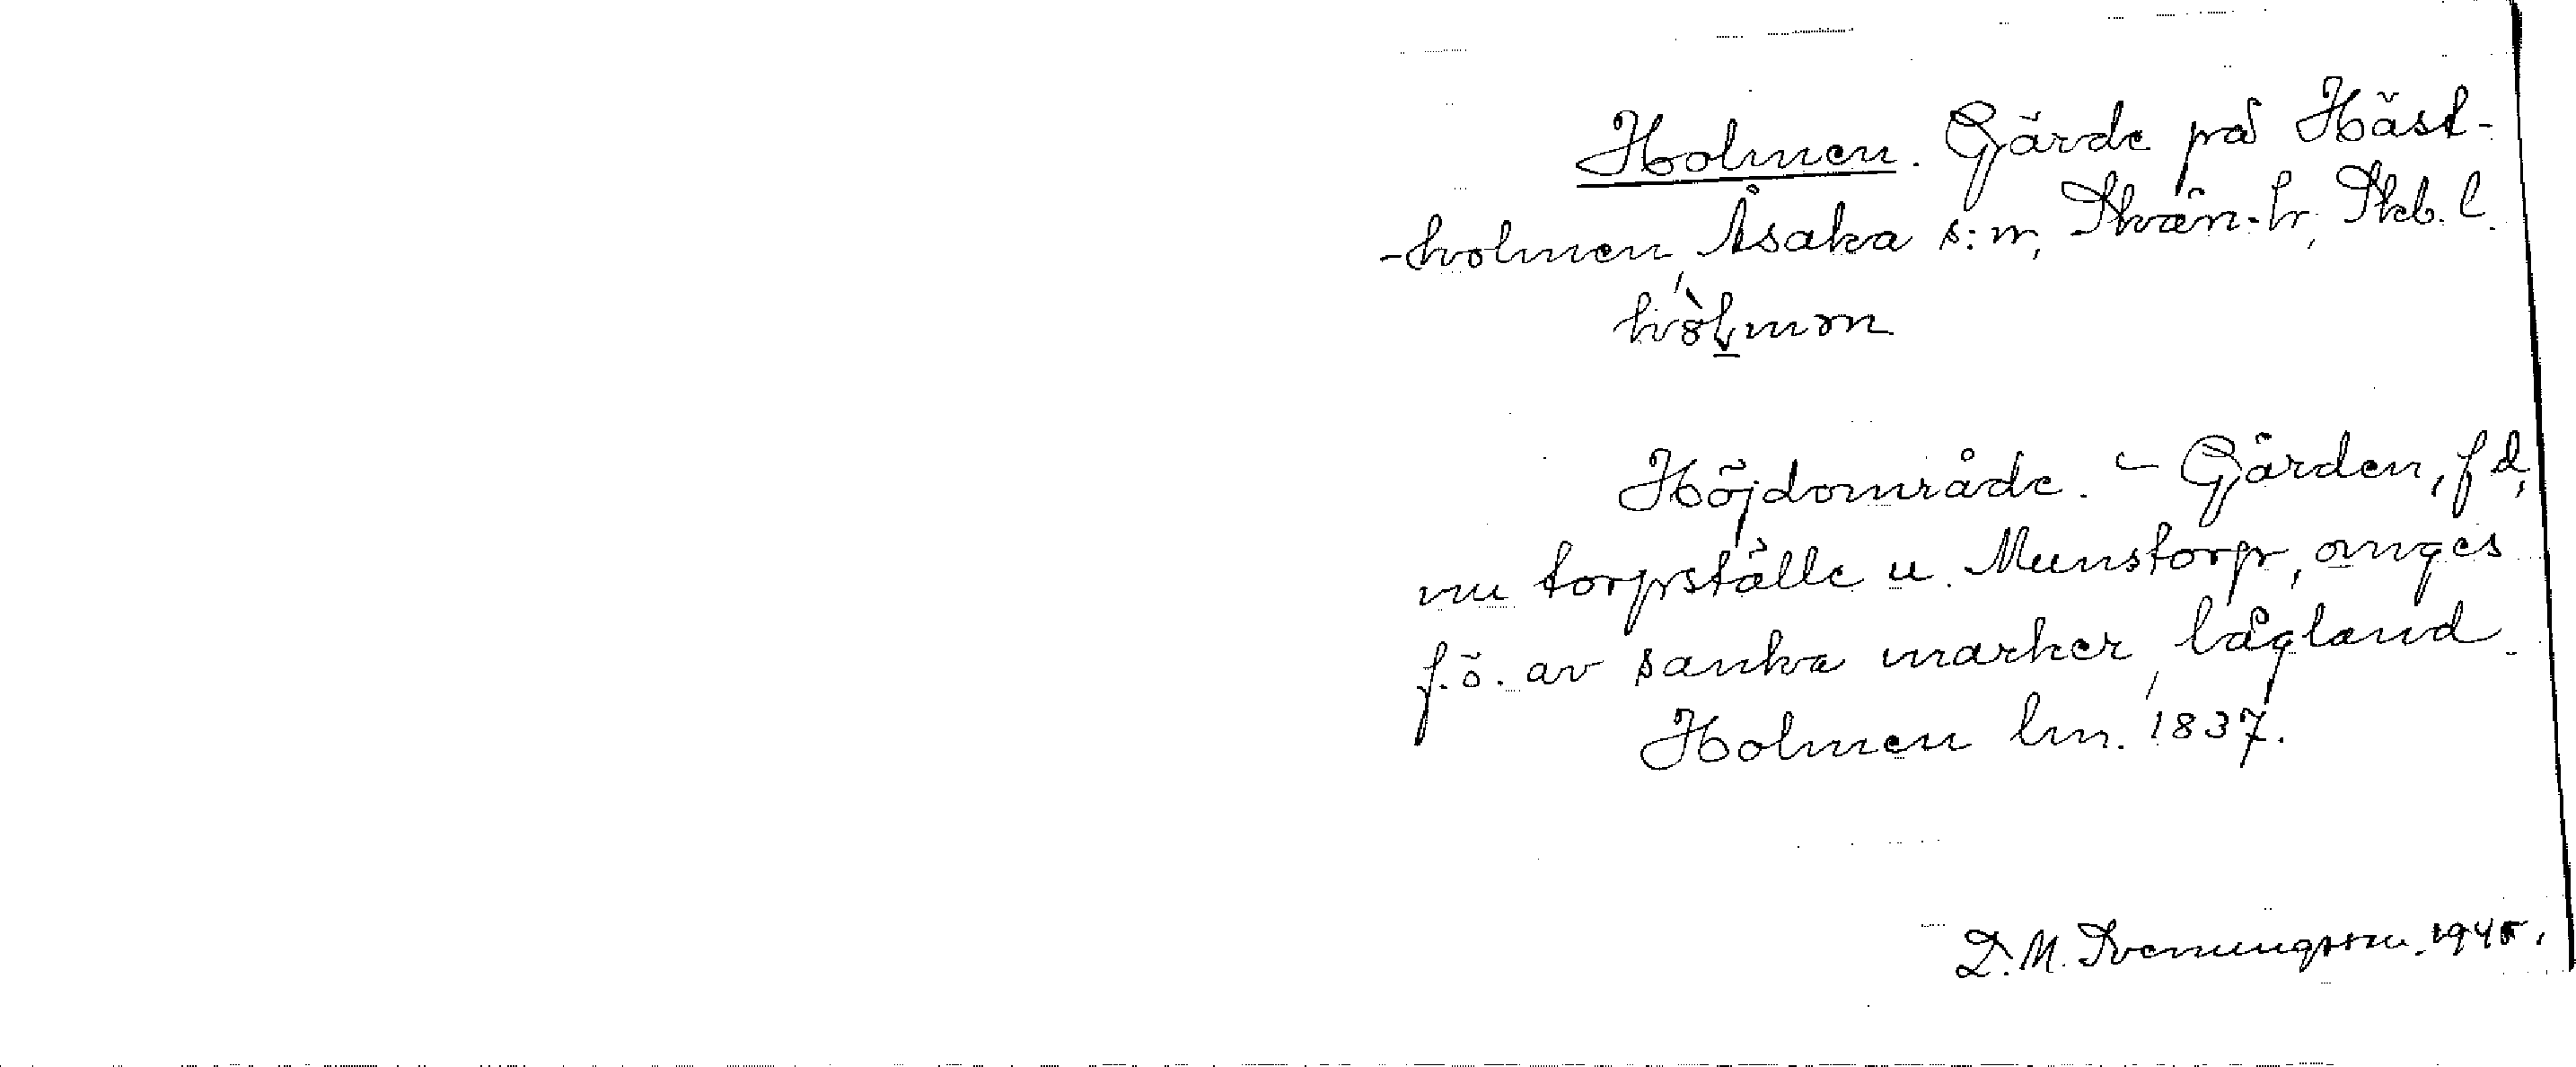 Holmen. Gärde på Häst-
-holmen, Åsaka s:n, Skån. hr, Skb. l.
Höjdområde. - Gården, f d,
nu torpställe u. Munstorp, omges
f. ö. av sanka marker, lågland.
Holmen lm. 1837.
D. M. Svenungsson. 1945.